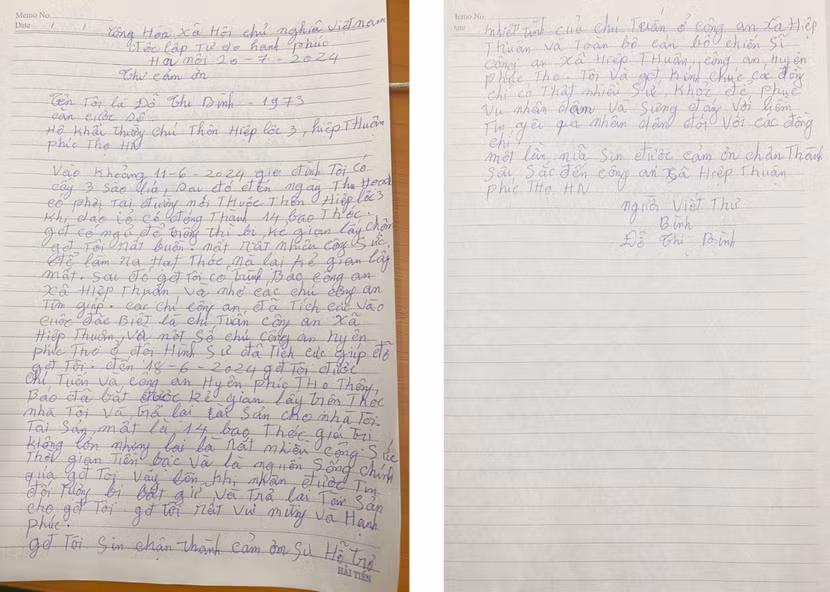 Memo No.
Date / /
Cộng Hòa Xã Hội chủ nghĩa Việt nam
độc lập Tự do hạnh phúc
Hà nội 20-7-2024
Thư cảm ơn
Tên Tôi là Đỗ Thị Bình - 1973
căn cước Số
Hộ Khẩu Thường chú Thôn Hiệp lộc 3, hiệp Thuận
phúc Thọ HN
Vào Khoảng 11-6-2024 gia đình Tôi có
cấy 3 sào lúa, Sau đó đến ngày Thu Hoạch
có phơi Tại đường mới Thuộc Thôn Hiệp lộc 3
Khi đó có đóng Thành 14 bao Thóc.
gđ có ngủ để trông thì bị kẻ gian lấy chộm
gđ Tôi rất buồn. mất rất nhiều công Sức
để làm ra Hạt Thóc mà lại kẻ gian lấy
mất. Sau đó gđ Tôi có trình Báo công an
xã Hiệp Thuận và nhờ các chú công an
Tìm giúp. các chú công an đã Tích cực vào
cuộc đặc Biệt là chú Tuấn công an Xã
Hiệp Thuận, và một Số chú công an huyện
phúc Thọ ở đội Hình Sự đã Tích cực giúp đỡ
gđ Tôi. đến 18-6-2024 gđ Tôi được
chú Tuấn và công an Huyện phúc Thọ Thông
Báo đã bắt được kẻ gian lấy trộm Thóc
nhà Tôi và trả lại tài Sản cho nhà Tôi.
Tài Sản mất là 14 bao Thóc giá trị
không lớn nhưng lại là rất nhiều công Sức
Thời gian Tiền bạc và là nguồn Sống chính
của gđ Tôi. Vậy lên khi nhận được Tin
đối Tượng bị bắt giữ và Trả lại Tài Sản
cho gđ Tôi. gđ Tôi rất vui mừng và Hạnh
phúc.
gđ Tôi Sin chân thành cảm ơn Sự Hỗ Trợ
HẢI TIẾN
Memo No.
nhiệt tình của chú Tuấn ở công an xã Hiệp
Thuận và Toàn bộ cán bộ chiến Sĩ
công an xã Hiệp Thuận, công an huyện
phúc Thọ. Tôi và gđ Kính chúc các đồng
chí có Thật nhiều Sức Khỏe để phục
vụ nhân dân và Sứng đáng với liềm
Tin yêu quá nhân dân đối với các đồng
chí!
một lần nữa Sin được cảm ơn chân Thành
Sâu Sắc đến công an xã Hiệp Thuận
phúc Thọ HN
người Viết Thư
Bình
Đỗ Thị Bình